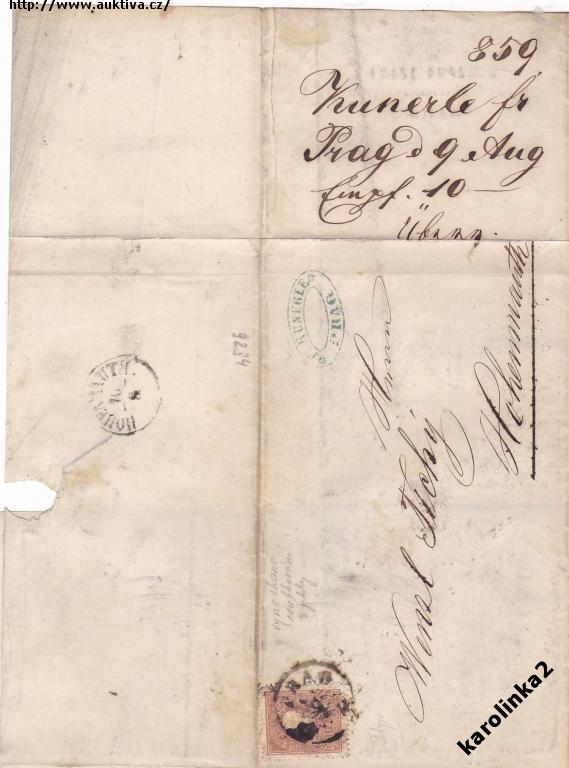 http://www.auktiva.cz/
859
Kunerle fr
Prag d 9 Aug
Empf. 10 —
J. KUNERLE
PRAG
9234
HOHENMAUTH
Herrn
Wenzl Tichý
Hohenmauth
PRAG
karolinka2